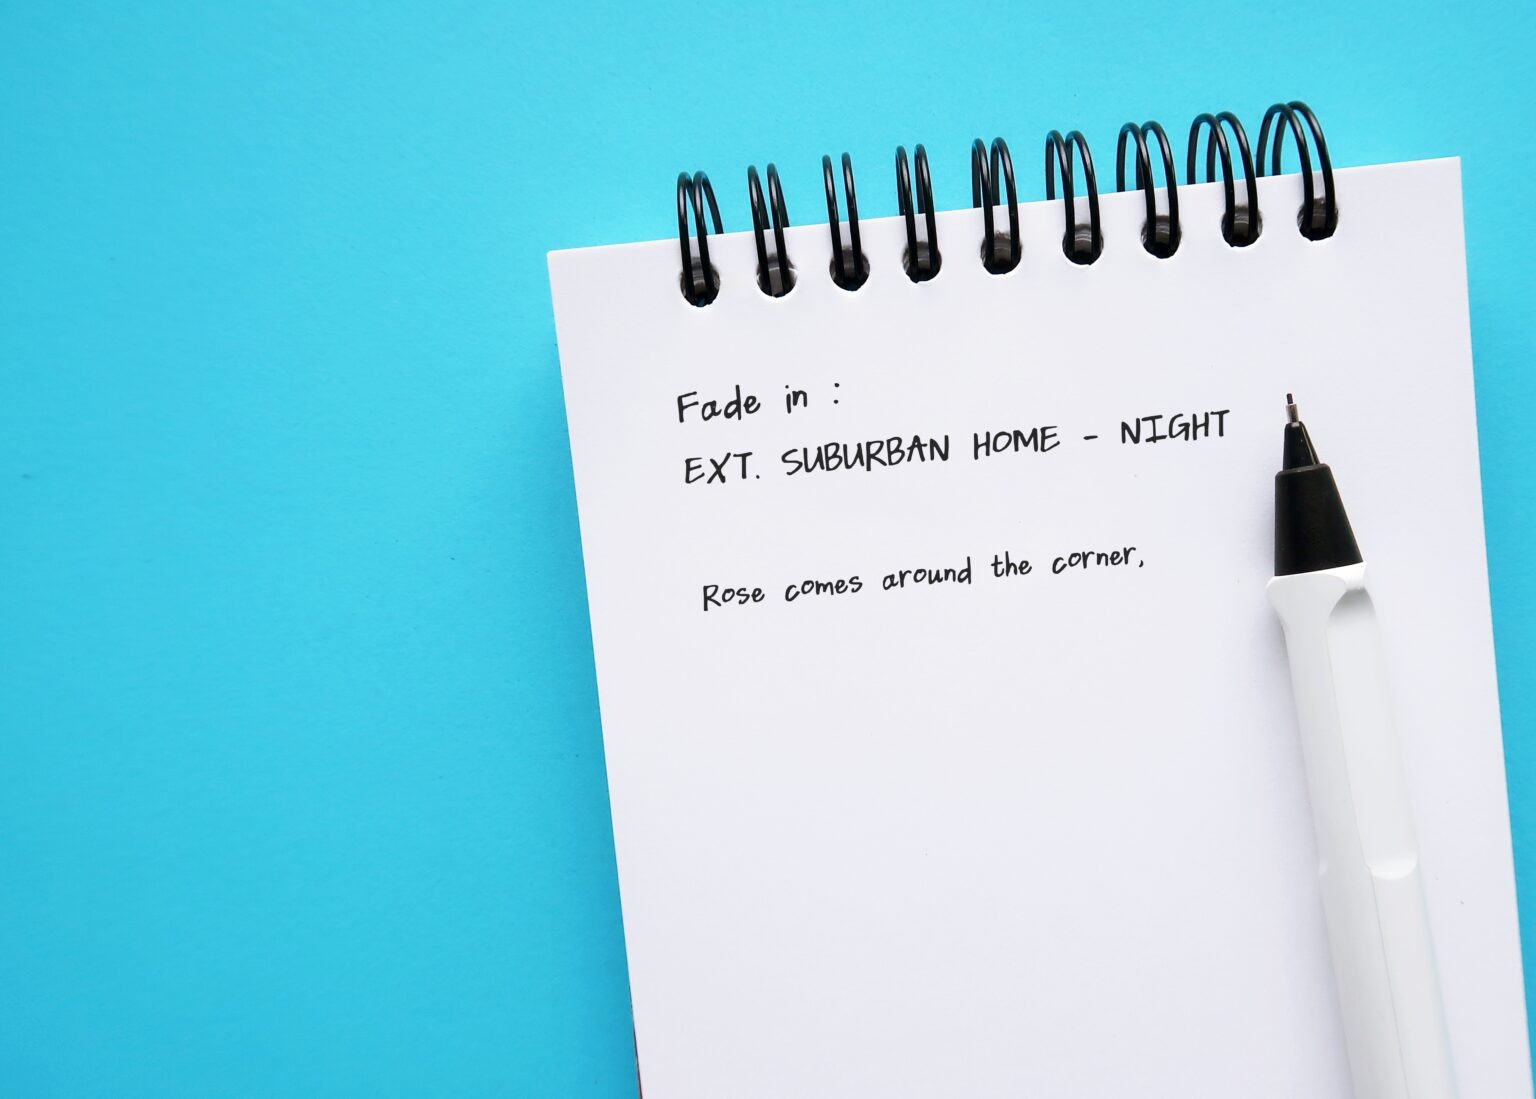 Fade in :
EXT. SUBURBAN HOME - NIGHT
Rose comes around the corner,